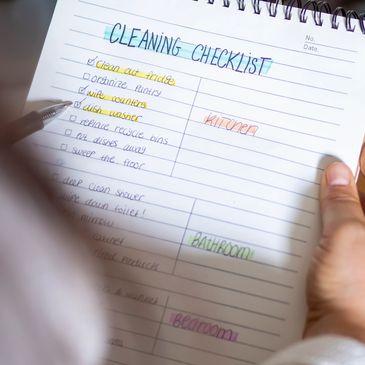 No.
Date.
CLEANING CHECKLIST
clean out fridge
organize pantry
wipe counters
dish washer
replace recycle bins
put dishes away
sweep the floor
KITCHEN
deep clean shower
wipe down toilet!
mirrow
cabinet
products
BATHROOM
BEDROOM